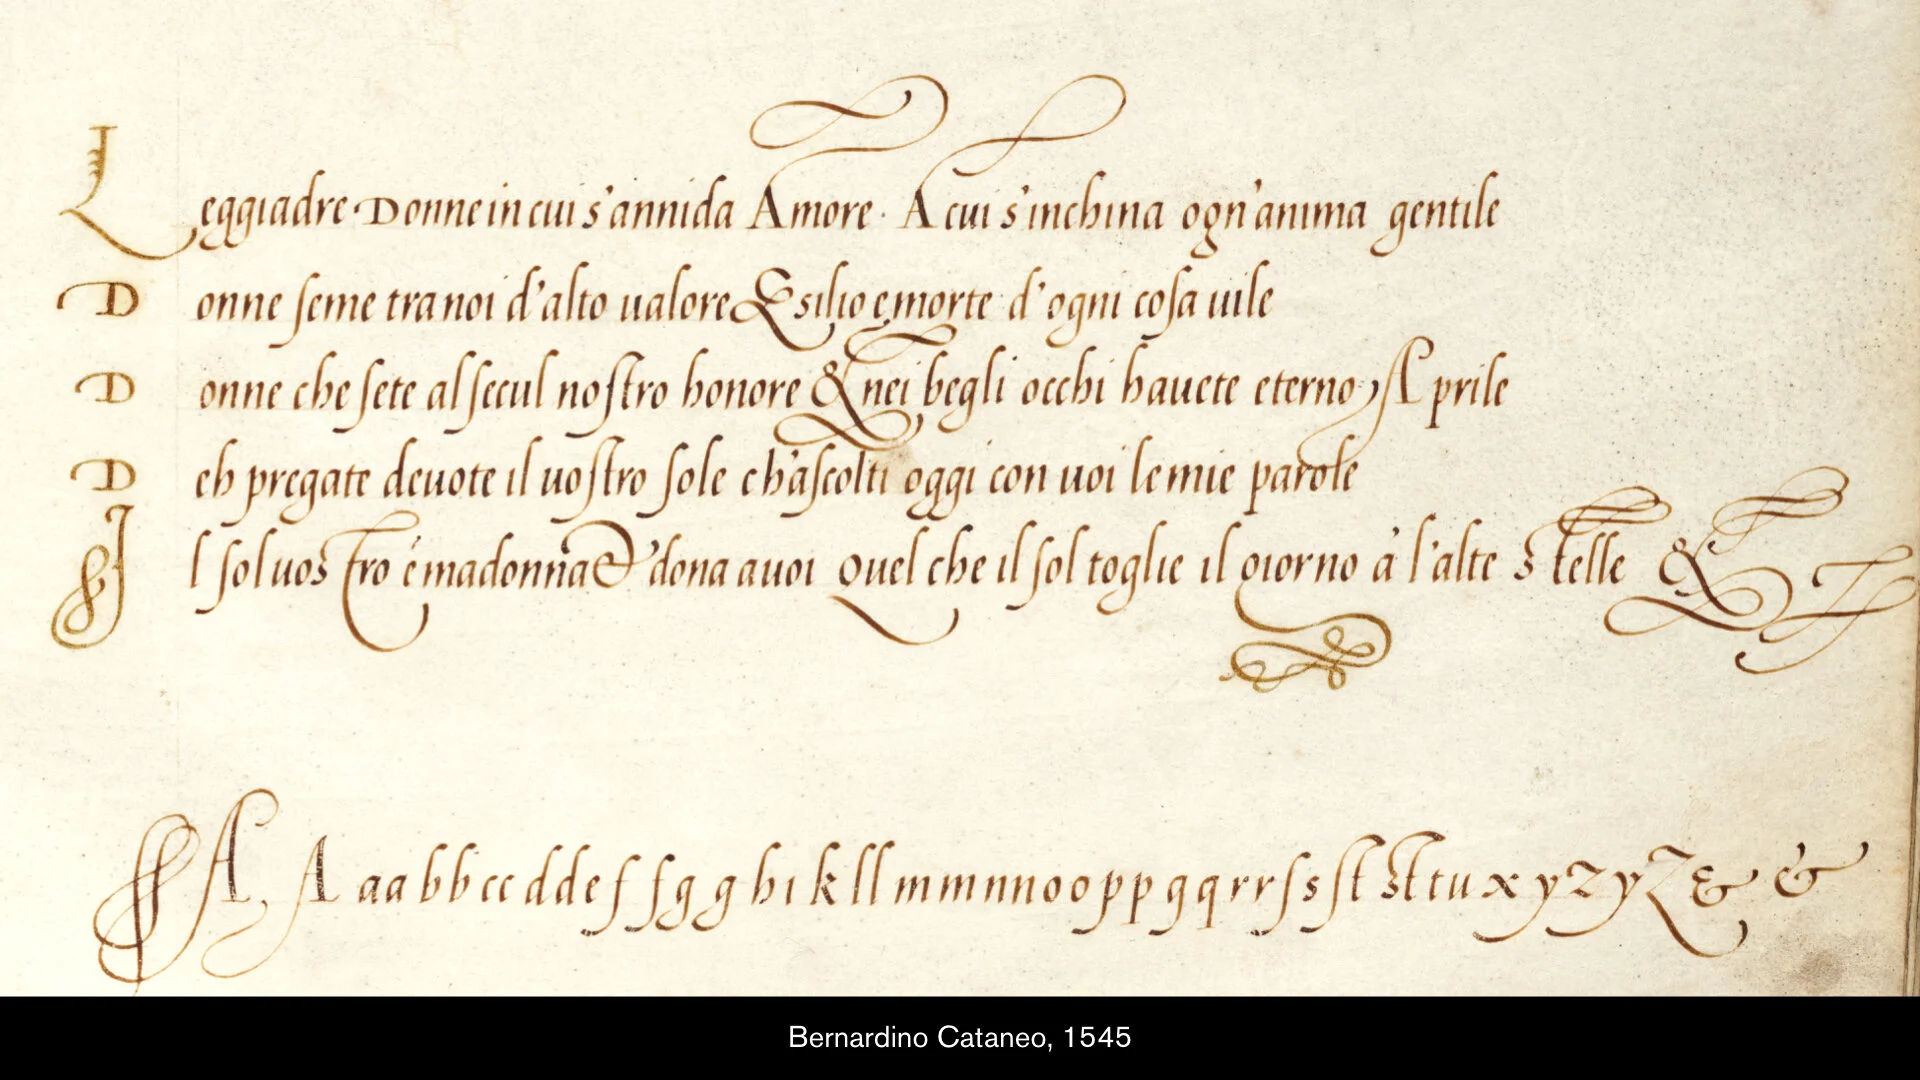 Leggiadre Donne in cui s'annida Amore · A cui s'inchina ogn'anima gentile
Donne seme tra noi d'alto ualore Esilio e morte d'ogni cosa uile
Donne che sete al secul nostro honore & nei begli occhi hauete eterno Aprile
Deh pregate deuote il uostro sole ch'ascolti oggi con uoi le mie parole
Il sol uostro é madonna & dona a uoi Quel che il sol toglie il giorno à l'alte stelle &
A A a a b b c c d d e f f g g h i k l l m m n n o o p p q q r r s s st st t u x y z y z & &
Bernardino Cataneo, 1545